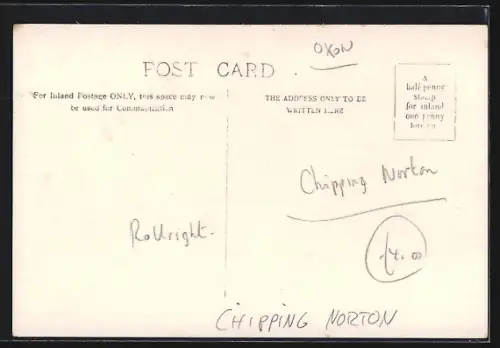 OXON
POST CARD
For Inland Postage ONLY, this space may now
be used for Communication
THE ADDRESS ONLY TO BE
WRITTEN HERE
A
half-penny
stamp
for inland
one penny
foreign
Chipping Norton
Rollright.
£4.00
CHIPPING NORTON